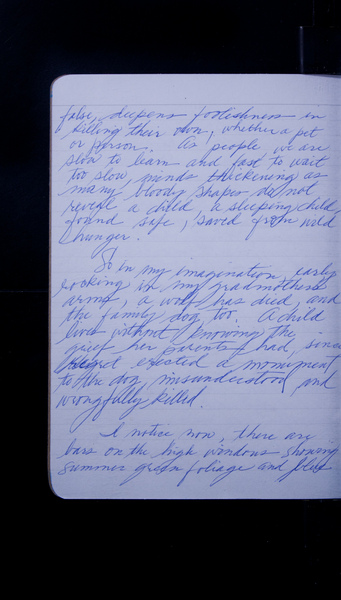 false, deepens foolishness in
killing their own, whether a pet
or person. As people, we are
slow to learn and fast to wait
too slow, minds thickening as
many bloody shapes do not
reveal a child, a sleeping child,
found safe, saved from wild
hunger.
So in my imagination, early
rocking in my gradmothers
arms, a wolf has died, and
the family dog too. A child
lives without knowing the
grief her parents had, since
erected a monument
to the dog, misunderstood and
wrongfully killed.
I notice now, there are
bars on the high windows showing
summer green foliage and blue